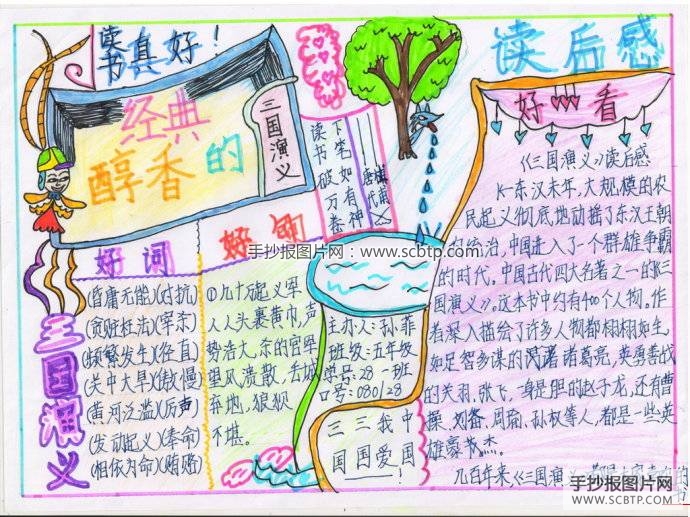 读书真好！
经典
醇香的
三国演义
读书破万卷
下笔如有神
唐代
读后感
好看
《三国演义》读后感
东汉末年,大规模的农
民起义彻底地动摇了东汉王朝
的统治,中国进入了一个群雄争霸
的时代。中国古代四大名著之一的《三
国演义》。这本书中约有400个人物。作
者深入描绘了许多人物都栩栩如生。
如足智多谋的诸葛亮,英勇善战
的关羽、张飞,一身是胆的赵子龙,还有曹
操、刘备、周瑜、孙权等人,都是一些英
雄豪杰。
几百年来《三国演义
好词
(昏庸无能)(对抗)
(贪赃枉法)(宰杀)
(频繁发生)(径直)
(关中大旱)(傲慢)
(黄河泛滥)(厉声)
(发动起义)(奉命)
(相依为命)(贿赂)
好句
①几十万起义军
人人头裹黄巾,声
势浩大,东的官军
望风溃散,丢城
弃地,狼狈
不堪。
三国演义
主办人:孙菲
班级:五年级
学号:28 一班
口号:080128
三三我中
国国爱国!
手抄报图片网·收藏
www.scbtp.com
手抄报图片网
WWW.SCBTP.COM